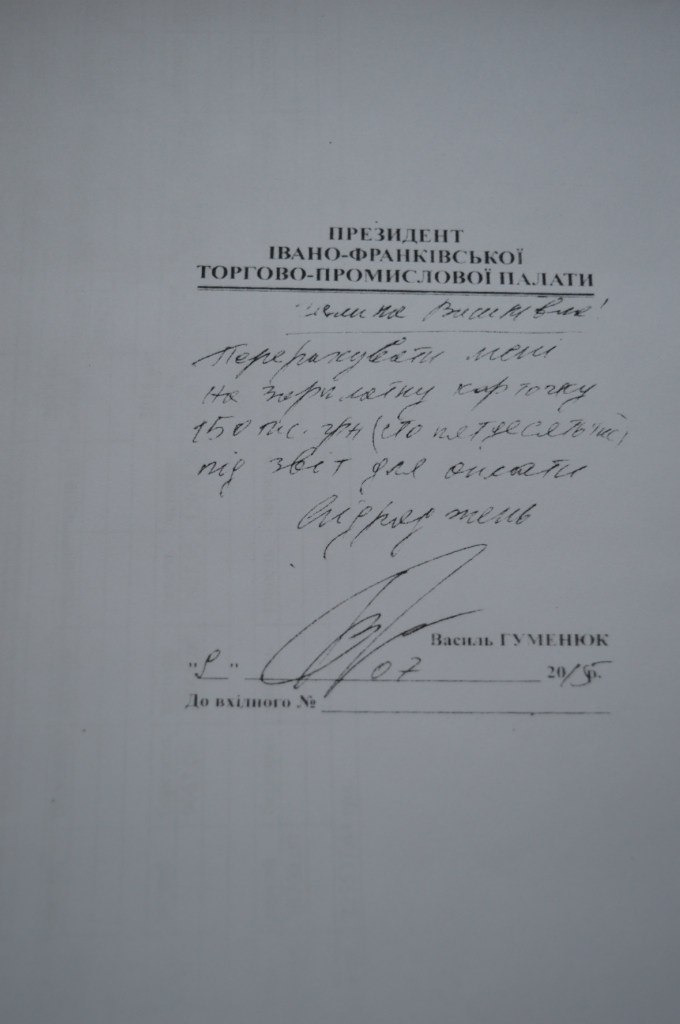 ПРЕЗИДЕНТ
ІВАНО-ФРАНКІВСЬКОЇ
ТОРГОВО-ПРОМИСЛОВОЇ ПАЛАТИ
Перерахувати мені
на зарплатну карточку
150 тис. грн (сто пятдесят тис)
під звіт для оплати
відряджень
Василь ГУМЕНЮК
"9" 07 2015р.
До вхідного №